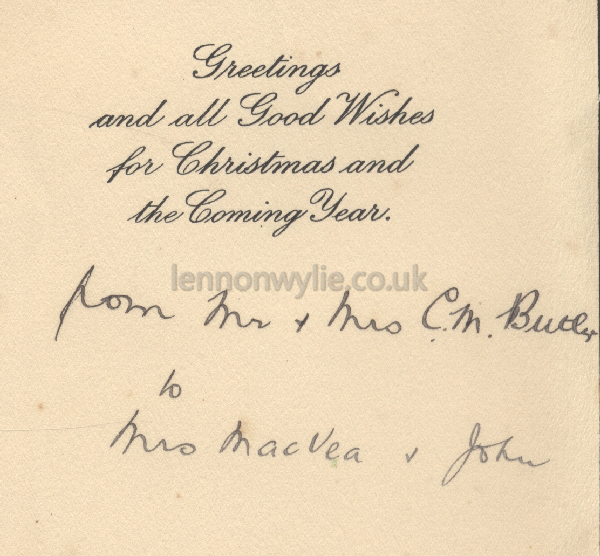 Greetings
and all Good Wishes
for Christmas and
the Coming Year.
lennonwylie.co.uk
from Mr + Mrs C.M. Butler
to
Mrs MacVea + John